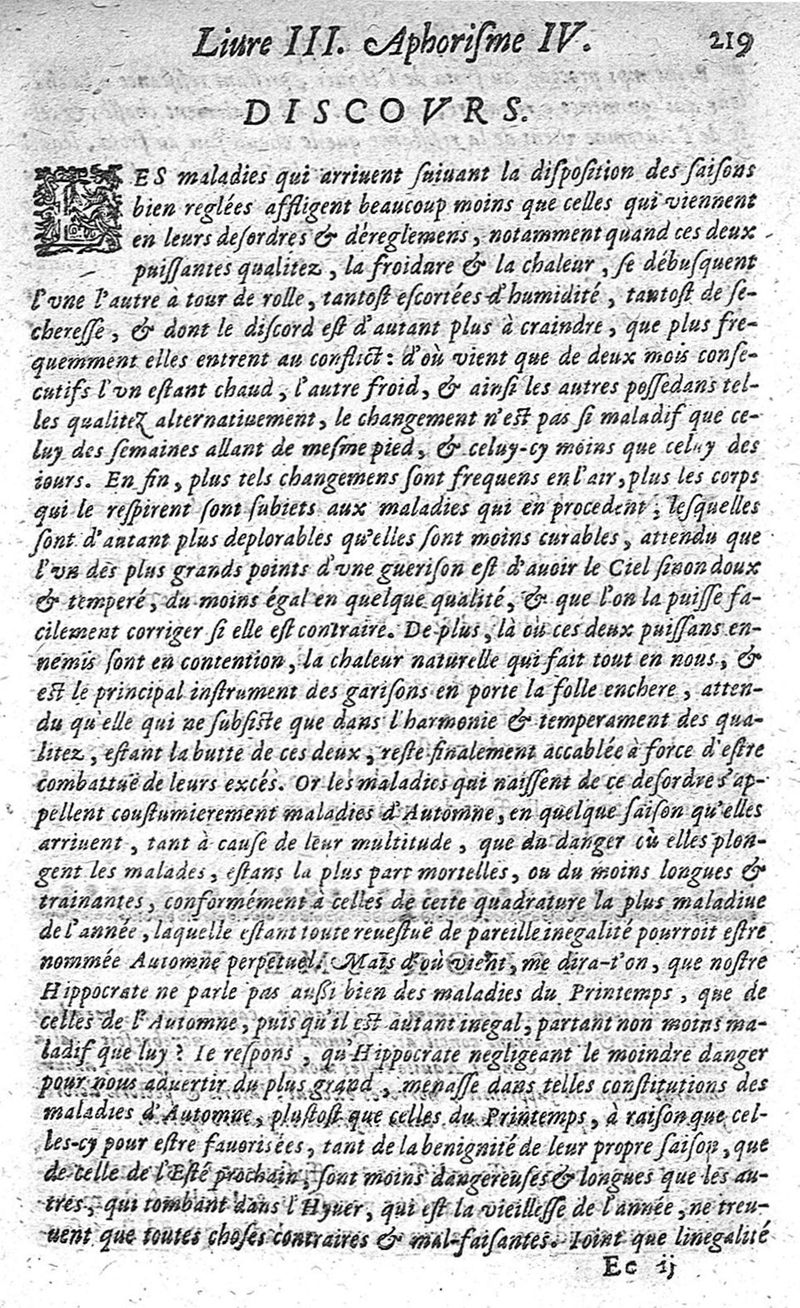 Liure III. Aphoriſme IV. 219
DISCOVRS.
LES maladies qui arriuent ſuiuant la diſpoſition des ſaiſons
bien reglées affligent beaucoup moins que celles qui viennent
en leurs deſordres & déreglemens, notamment quand ces deux
puiſſantes qualitez, la froidure & la chaleur, ſe débuſquent
l'vne l'autre a tour de rolle, tantoſt eſcortées d'humidité, tantoſt de ſe-
chereſſe, & dont le diſcord eſt d'autant plus à craindre, que plus fre-
quemment elles entrent au conflict: d'où vient que de deux mois conſe-
cutifs l'vn eſtant chaud, l'autre froid, & ainſi les autres poſſedans tel-
les qualitez alternatiuement, le changement n'eſt pas ſi maladif que ce-
luy des ſemaines allant de meſme pied, & celuy-cy moins que celuy des
iours. En fin, plus tels changemens ſont frequens en l'air, plus les corps
qui le reſpirent ſont ſubiets aux maladies qui en procedent; leſquelles
ſont d'autant plus deplorables qu'elles ſont moins curables, attendu que
l'vn des plus grands points d'vne gueriſon eſt d'auoir le Ciel ſinon doux
& temperé, du moins égal en quelque qualité, & que l'on la puiſſe fa-
cilement corriger ſi elle eſt contraire. De plus, là où ces deux puiſſans en-
nemis ſont en contention, la chaleur naturelle qui fait tout en nous, &
eſt le principal inſtrument des gariſons en porte la folle enchere, atten-
du qu'elle qui ne ſubſiſte que dans l'harmonie & temperament des qua-
litez, eſtant la butte de ces deux, reſte finalement accablée à force d'eſtre
combattuë de leurs excés. Or les maladies qui naiſſent de ce deſordre s'ap-
pellent couſtumierement maladies d'Automne, en quelque ſaiſon qu'elles
arriuent, tant à cauſe de leur multitude, que du danger où elles plon-
gent les malades, eſtans la plus part mortelles, ou du moins longues &
trainantes, conformément à celles de cette quadrature la plus maladiue
de l'année, laquelle eſtant toute reueſtuë de pareille inégalité pourroit eſtre
nommée Automne perpetuel. Mais d'où vient, me dira-t'on, que noſtre
Hippocrate ne parle pas auſſi bien des maladies du Printemps, que de
celles de l'Automne, puis qu'il eſt autant inegal, partant non moins ma-
ladif que luy? Ie reſpons, qu'Hippocrate negligeant le moindre danger
pour nous aduertir du plus grand, menaſſe dans telles conſtitutions des
maladies d'Automne, pluſtoſt que celles du Printemps, à raiſon que cel-
les-cy pour eſtre fauoriſées, tant de la benignité de leur propre ſaiſon, que
de celle de l'Eſté prochain, ſont moins dangereuſes & longues que les au-
tres, qui tombant dans l'Hyuer, qui eſt la vieilleſſe de l'année, ne treu-
uent que toutes choſes contraires & mal-faiſantes. Ioint que linegalité
Ee ij